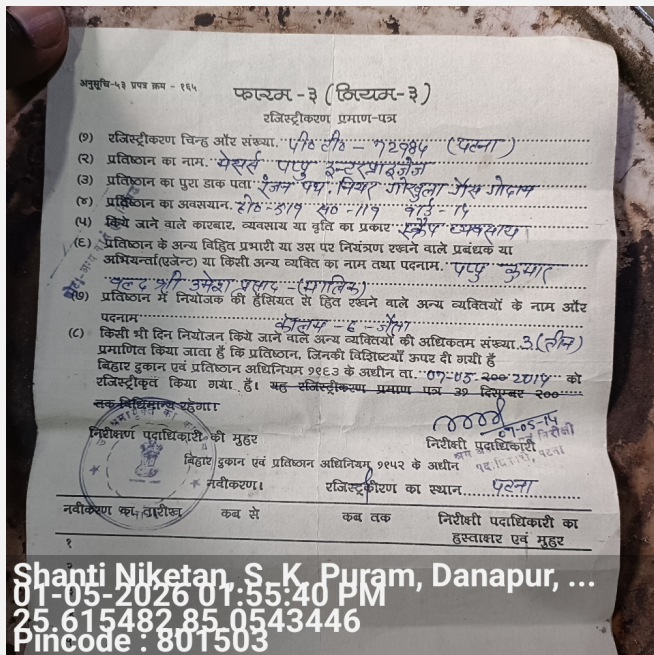 अनुसूचि-५३ प्रपत्र क्रम - १६५
फारम -३ (नियम-३)
रजिस्ट्रीकरण प्रमाण-पत्र
(१) रजिस्ट्रीकरण चिन्ह और संख्या. पी० टी० - 72984 (पटना)
(२) प्रतिष्ठान का नाम. मेसर्स पप्पु इन्टरप्राइजेज
(3) प्रतिष्ठान का पुरा डाक पता. रंजन पथ. नियर गोखुला गैस गोदाम
(४) प्रतिष्ठान का अवसयान. वार्ड - 14
(५) किये जाने वाले कारबार, व्यवसाय या वृति का प्रकार. स्क्रैप व्यवसाय
(६) प्रतिष्ठान के अन्य विहित प्रभारी या उस पर नियंत्रण रखने वाले प्रबंधके या
अभियन्ता(एजेन्ट) या किसी अन्य व्यक्ति का नाम तथा पदनाम. पप्पु कुमार
वल्द श्री उमेश प्रसाद - (मालिक)
(७) प्रतिष्ठान में नियोजक की हैसियत से हित रखने वाले अन्य व्यक्तियों के नाम और
पदनाम कॉलम - 6 - जैसा
(८) किसी भी दिन नियोजन किये जाने वाले अन्य व्यक्तियों की अधिकतम संख्या. 3 (तीन)
प्रमाणित किया जाता हैं कि प्रतिष्ठान, जिनकी विशिष्टयाँ ऊपर दी गयी हैं
बिहार दुकान एवं प्रतिष्ठान अधिनियम १९६३ के अधीन ता. 07-05-200 2014 को
रजिस्ट्रीकृत किया गया. है। यह रजिस्ट्रीकरण प्रमाण पत्र ३१ दिसम्बर २००
तक विधिमान्य रहेगा।
07-05-14
निरीक्षण पदाधिकारी की मुहर निरीक्षी पदाधिकारी
बिहार दुकान एवं प्रतिष्ठान अधिनियम, १९५२ के अधीन
नवीकरण। रजिस्ट्रकीरण का स्थान. पटना
नवीकरण का तारीख कब से कब तक निरीक्षी पदाधिकारी का
हस्ताक्षर एवं मुहर
१
Shanti Niketan, S. K. Puram, Danapur, ...
01-05-2026 01:55:40 PM
25.615482,85.0543446
Pincode : 801503